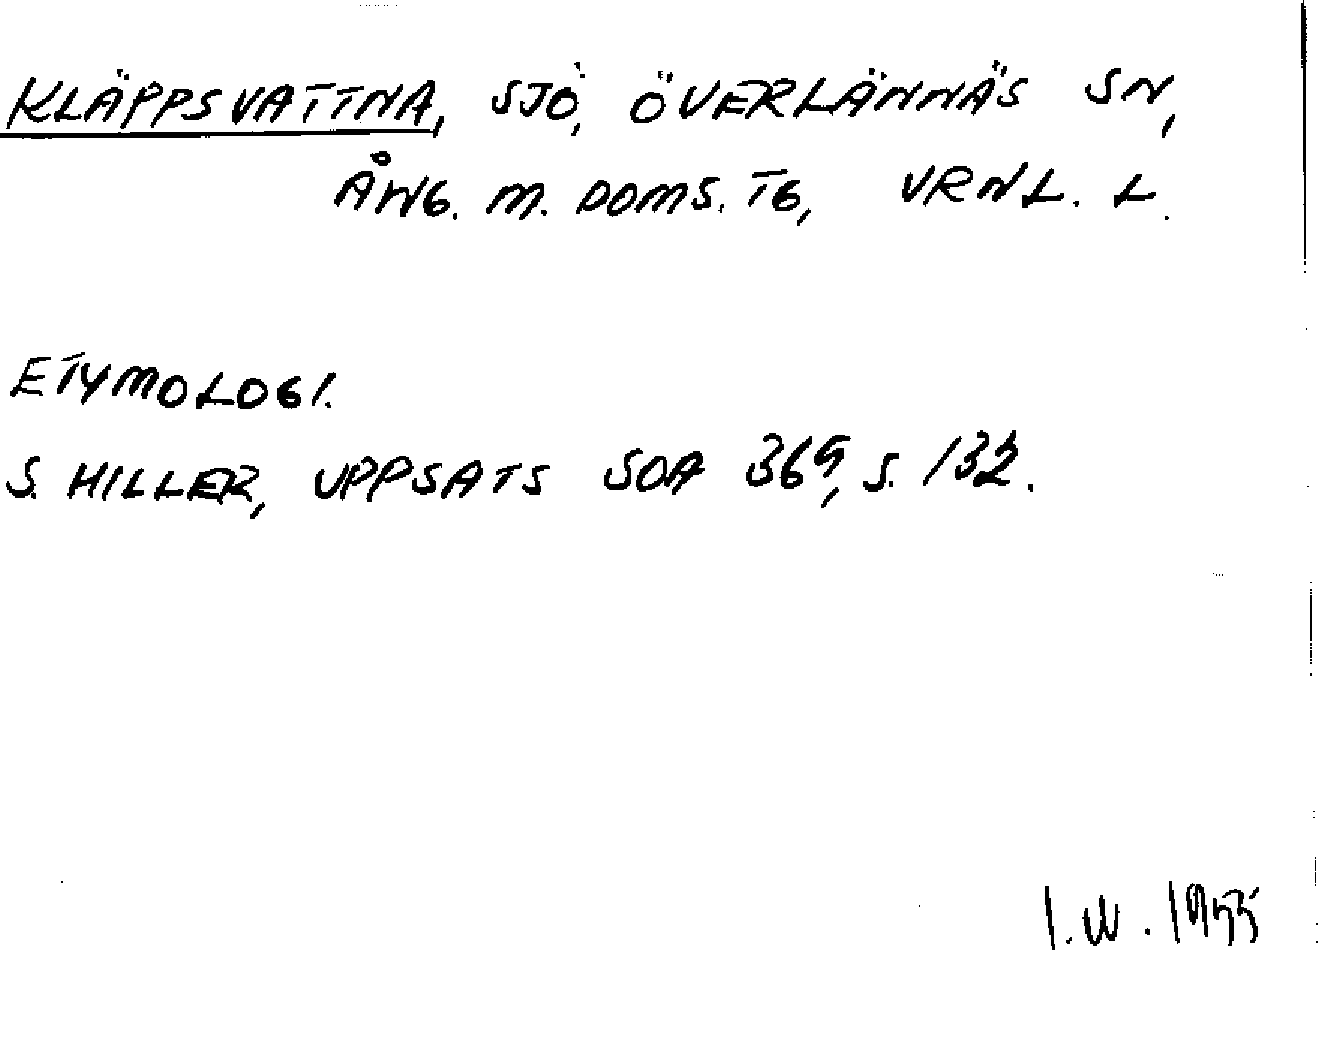 KLÄPPSVATTNA, SJÖ, ÖVERLÄNNÄS SN,
ÅNG. M. DOMS. TG, VRNL. L.
ETYMOLOGI.
S. HILLER, UPPSATS SOA 369, S. 132.
I.W. 1955